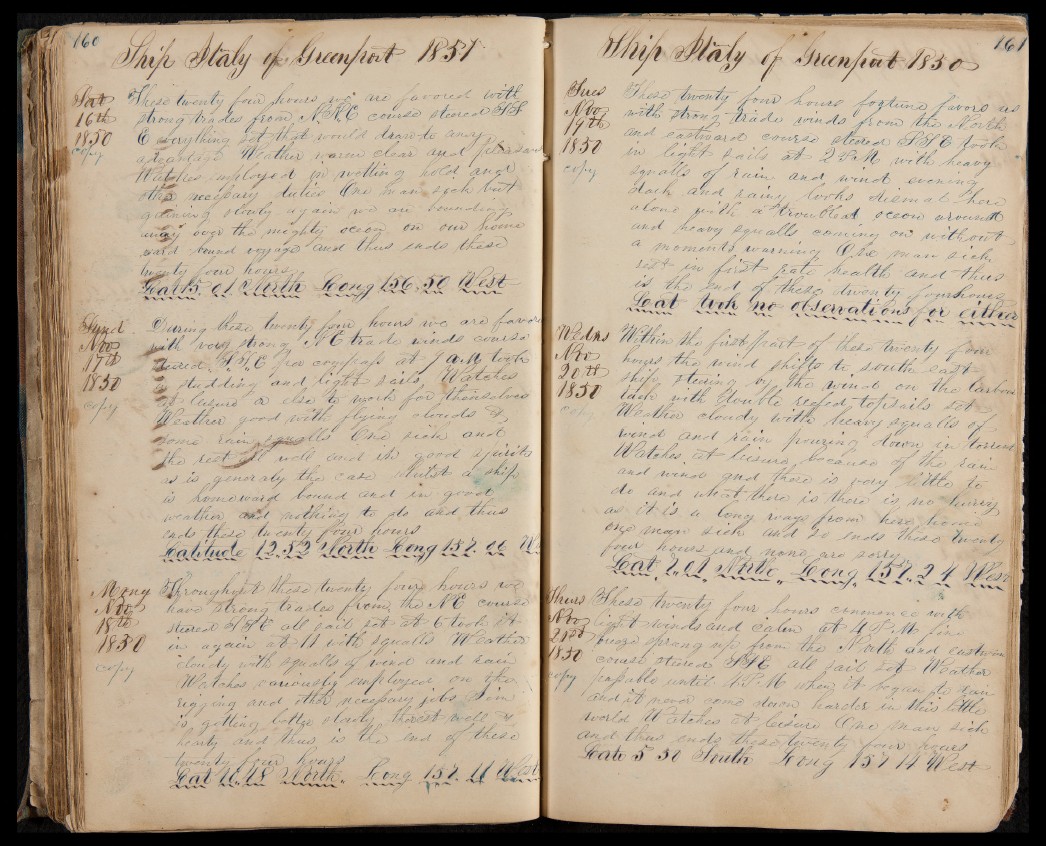 160
Ship Italy of Greenport 1851
Sat
16th
1850
copy
These twenty four hours we are favored with
strong trades from N.N.E course steered S.S.
E everything set that would draw to any
advantage Weather warm clear and pleasant
Watches employed in wetting hold and
other necessary duties One man sick but
gaining slowly again we are bounding
away over the mighty ocean on our home
ward bound voyage and thus ends these
twenty four hours
Lat 15. 01 North Long 156. 50 West
Sund
Nov
17th
1850
copy
During these twenty four hours we are favored
with very strong N.E trade winds course
steered S.S.E per compass at 7 a.M took
in studding and light sails Watches
at leisure or else to work for themselves
Weather good with flying clouds &
some rain squalls One sick and
the rest all well and in good spirits
as is generaly the case whilst a ship
is homeward bound and in good
weather and nothing to do and thus
ends these twenty four hours
Latitude 12.52 North Long 157. 06 We
Mong
Nov
18th
1850
copy
Throughout these twenty four hours we
have strong trades from the N.E course
steered S.S.E all sail set at 6 took it
in again at 11 with squalls Weather
cloudy with squalls of wind and rain
Watches variously employed on the
rigging and other necessary jobs Jim
is getting better slowly the rest well &
hearty and thus is the end of these
twenty four hours
Lat 10.18 North. Long 157. 11 West
161
Ship Italy of Greenport 1850
Tues
Nov
19th
1850
copy
These twenty four hours fortune favors us
with strong trade winds from the North
and eastward course steered S.S.E took
in light sails at 2 P.M with heavy
squalls of rain and wind evening
dark and rainy looks dismal here
alone with a troubled ocean around
and heavy squalls coming on without
a moments warning One man sick
rest in first rate health and thus
is the end of these twenty four hours
Lat no observations for either
Wedns
Nov
20th
1850
copy
Within the first part of these twenty four
hours the wind shifts to south east
ship steering by the wind on the larboard
tack with double reefed topsails set
Weather cloudy with heavy squalls of
wind and rain pouring down in torrents
Watches at leisure because of the rain
and wind and there is very little to
do and what there is there is no hurry
as it is a long ways from here home
one man sick and so ends these twenty
four hours and none are sorry
Lat 7.01 North Long 157. 24 West
Thurs
Nov
21st
1850
copy
These twenty four hours commence with
light winds and calm at 4 P.M fine
breeze sprang up from the North and eastward
course steered S.S.E all sail set Weather
passable until P.M when it began to rain
and it never come down harder in this little
world Watches at leisure One man sick
and thus ends these twenty four hours
Late 5 50 South Long 157 14 West